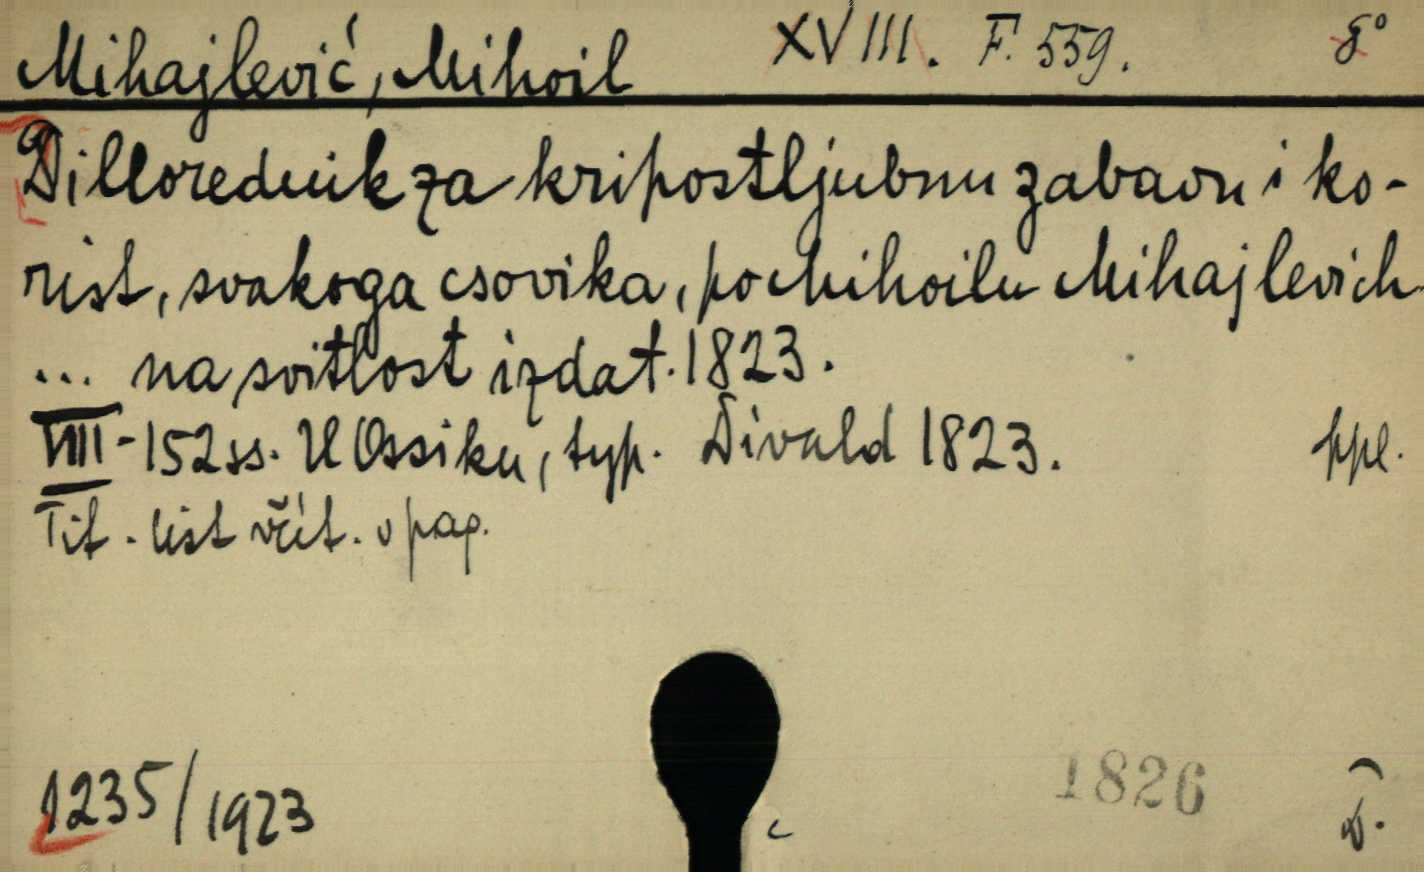 Mihajlević, Mihoil XVIII. F. 559. 8°
Dillorednik za kripostljubnu zabavu i ko-
rist, svakoga csovika, po Mihoilu Mihajlevich
... na svitlost izdat. 1823.
VIII-152 ss. U Ossiku, typ. Divald 1823. ppl.
Tit. list včit. u pag.
1235/1923
1826
D.